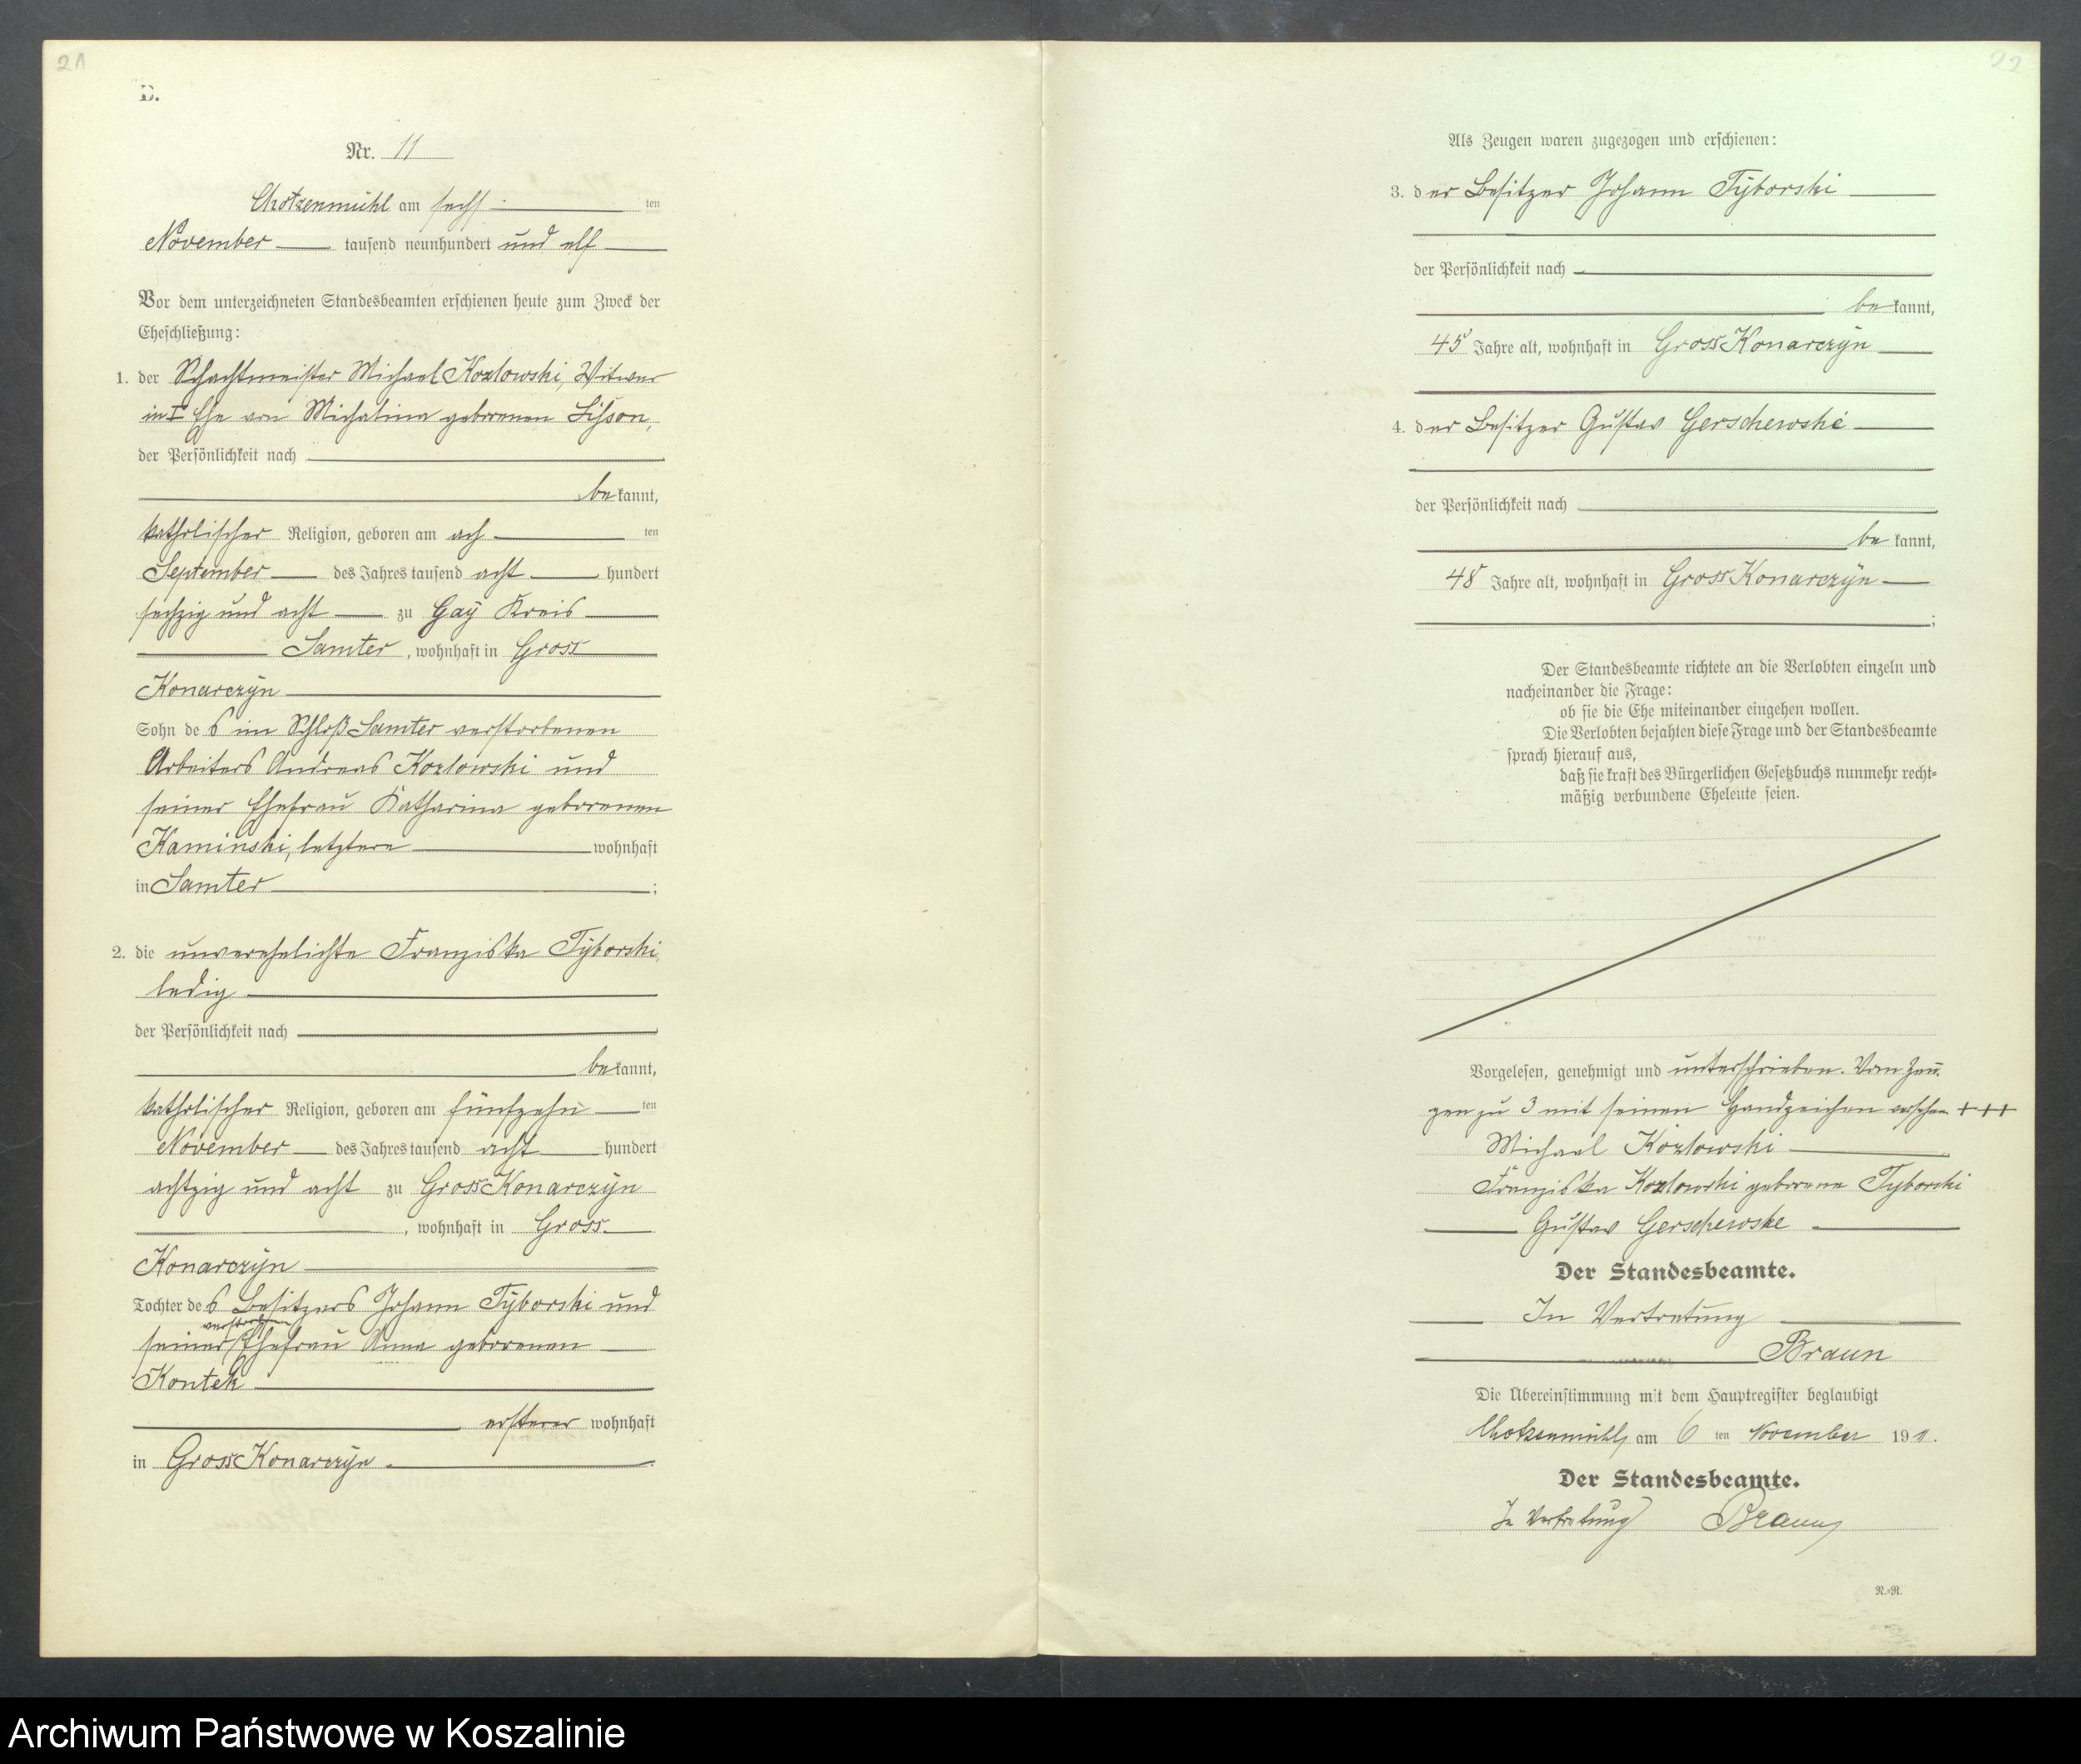 21
B.
Nr. 11
Chotzenmühl am sechs ten
November tausend neunhundert und elf
Vor dem unterzeichneten Standesbeamten erschienen heute zum Zweck der
Eheschließung:
1. der Schachtmeister Michael Kozlowski, Witwer
in I Ehe von Michalina geborenen Lisson,
der Persönlichkeit nach
be kannt,
katholischer Religion, geboren am ach ten
September des Jahres tausend acht hundert
sechzig und acht zu Gay Kreis
Samter, wohnhaft in Gross
Konarczyn
Sohn des im Schloß Samter verstorbenen
Arbeiters Andreas Kozlowski und
seiner Ehefrau Katharina geborenen
Kaminski, letztere wohnhaft
in Samter ;
2. die unverehelichte Franziska Tyborski,
ledig
der Persönlichkeit nach
be kannt,
katholischer Religion, geboren am fünfzehn ten
November des Jahres tausend acht hundert
achtzig und acht zu Gross Konarczyn
, wohnhaft in Gross
Konarczyn
Tochter des Besitzers Johann Tyborski und
verstorbenen
seiner Ehefrau Anna geborenen
Kontek
ersterer wohnhaft
in Gross Konarczyn.
22
Als Zeugen waren zugezogen und erschienen:
3. der Besitzer Johann Tyborski
der Persönlichkeit nach
be kannt,
45 Jahre alt, wohnhaft in Gross Konarczyn
4. der Besitzer Gustav Gerschewske
der Persönlichkeit nach
be kannt,
48 Jahre alt, wohnhaft in Gross Konarczyn
;
Der Standesbeamte richtete an die Verlobten einzeln und
nacheinander die Frage:
ob sie die Ehe miteinander eingehen wollen.
Die Verlobten bejahten diese Frage und der Standesbeamte
sprach hierauf aus,
daß sie kraft des Bürgerlichen Gesetzbuchs nunmehr recht-
mäßig verbundene Eheleute seien.
Vorgelesen, genehmigt und unterschrieben. Vom Zeu-
gen zu 3 mit seinen Handzeichen versehen +++
Michael Kozlowski
Franziska Kozlowski geborene Tyborski
Gustav Gerschewske
Der Standesbeamte.
In Vertretung
Braun
Die Übereinstimmung mit dem Hauptregister beglaubigt
Chotzenmühl, am 6 ten November 1911.
Der Standesbeamte.
In Vertretung Braun
N.-R.
Archiwum Państwowe w Koszalinie